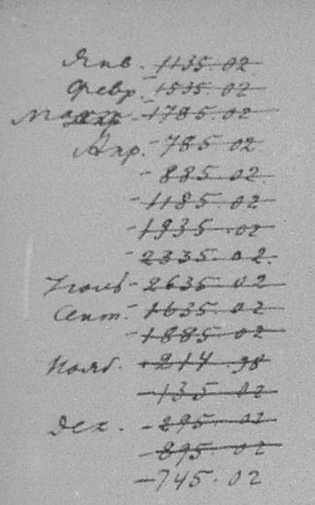 Янв. - 1135.02
Февр. - 1535.02
Март - 1785.02
Апр. - 785.02
- 885.02
- 1185.02
- 1935.02
- 2335.02
Июль - 2635.02
Сент. - 1635.02
- 1885.02
Нояб. - 214.98
- 135.02
Дек. - 295.02
- 895.02
- 745.02